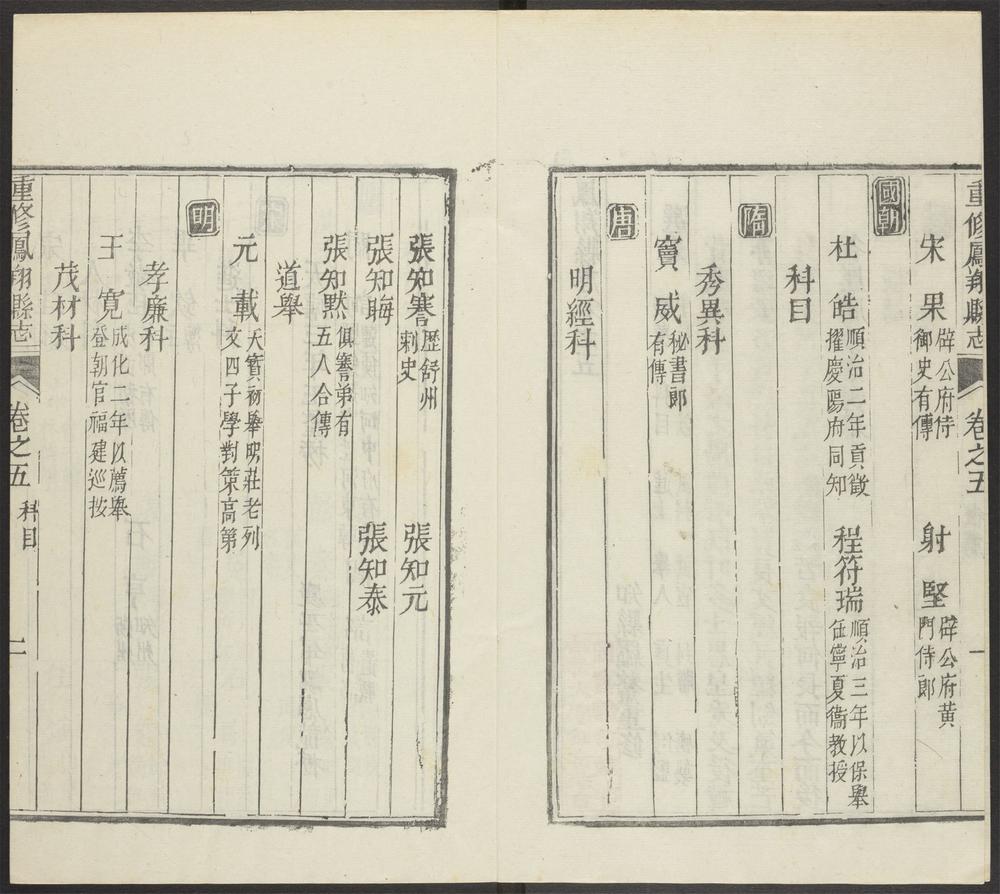 重修鳳翔縣志 卷之五 一
宋果 辟公府侍御史有傳 射堅 辟公府黄門侍郎
國朝
杜皓 順治二年貢徵擢慶陽府同知 程符瑞 順治三年以保舉任寧夏衞教授
科目
隋
秀異科
竇威 秘書郎有傳
唐
明經科
張知謇 歷舒州刺史 張知元
張知晦 張知泰
張知默 俱謇弟有五人合傳
道舉
元載 天寶初舉明莊老列文四子學對策高第
明
孝廉科
王寛 成化二年以薦舉登朝官福建巡按
茂材科
重修鳳翔縣志 卷之五 科目 二